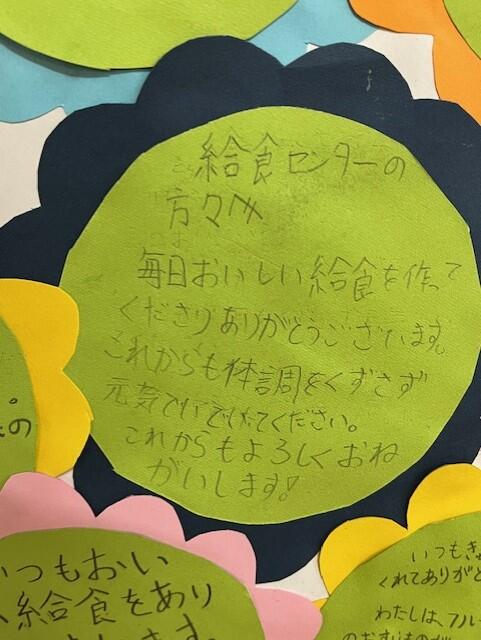 給食センターの
方々へ
毎日おいしい給食を作って
くださりありがとうございます。
これからも体調をくずさず
元気でいてください。
これからもよろしくおね
がいします!
いつもおい
給食をあり
いつもき
くれてありが
わたしは、フル